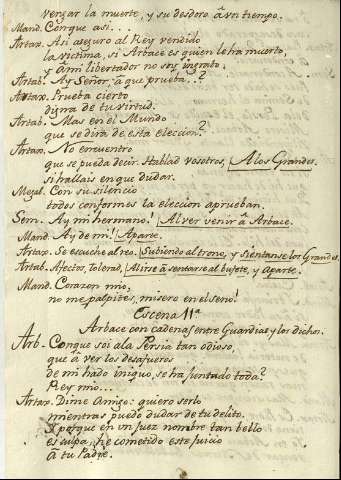 vengar la muerte, y su desdoro à vn tiempo.
Mand. Conque asi...
Artax. Asi aseguro al Rey vendido
la victima, si Arbace es quien le ha muerto,
y à mi libertador no soy ingrato.
Artab. Ay Señor, à que prueba..?
Artax. Prueba cierto
digna de tu virtud.
Artab. Mas en el Mundo
que se dirà de esta eleccion?
Artax. No encuentro
que se pueda decir. Hablad vosotros, A los Grandes.
si hallais en que dudar.
Megab. Con su silencio
todos conformes la eleccion aprueban.
Sem. Ay mi hermano! Al ver venir à Arbace.
Mand. Ay de mi! Aparte.
Artax. Se escuche al reo. Subiendo al trono, y sientanse los Grandes.
Artab. Afectos, tolerad, Al irse à sentarse al bufete, y aparte.
Mand. Corazon mio,
no me palpites, misero en el seno!
Escena 11ª
Arbace con cadenas entre Guardias y los dichos.
Arb. Conque soi a la Persia tan odioso,
que à ver los desafueros
de mi hado iniquo, se ha juntado toda?
Rey mio...
Artax. Dime Amigo: quiero serlo
mientras puedo dudar de tu delito.
Y porque en un juez nombre tan bello
es culpa, he cometido este juicio
à tu Padre.